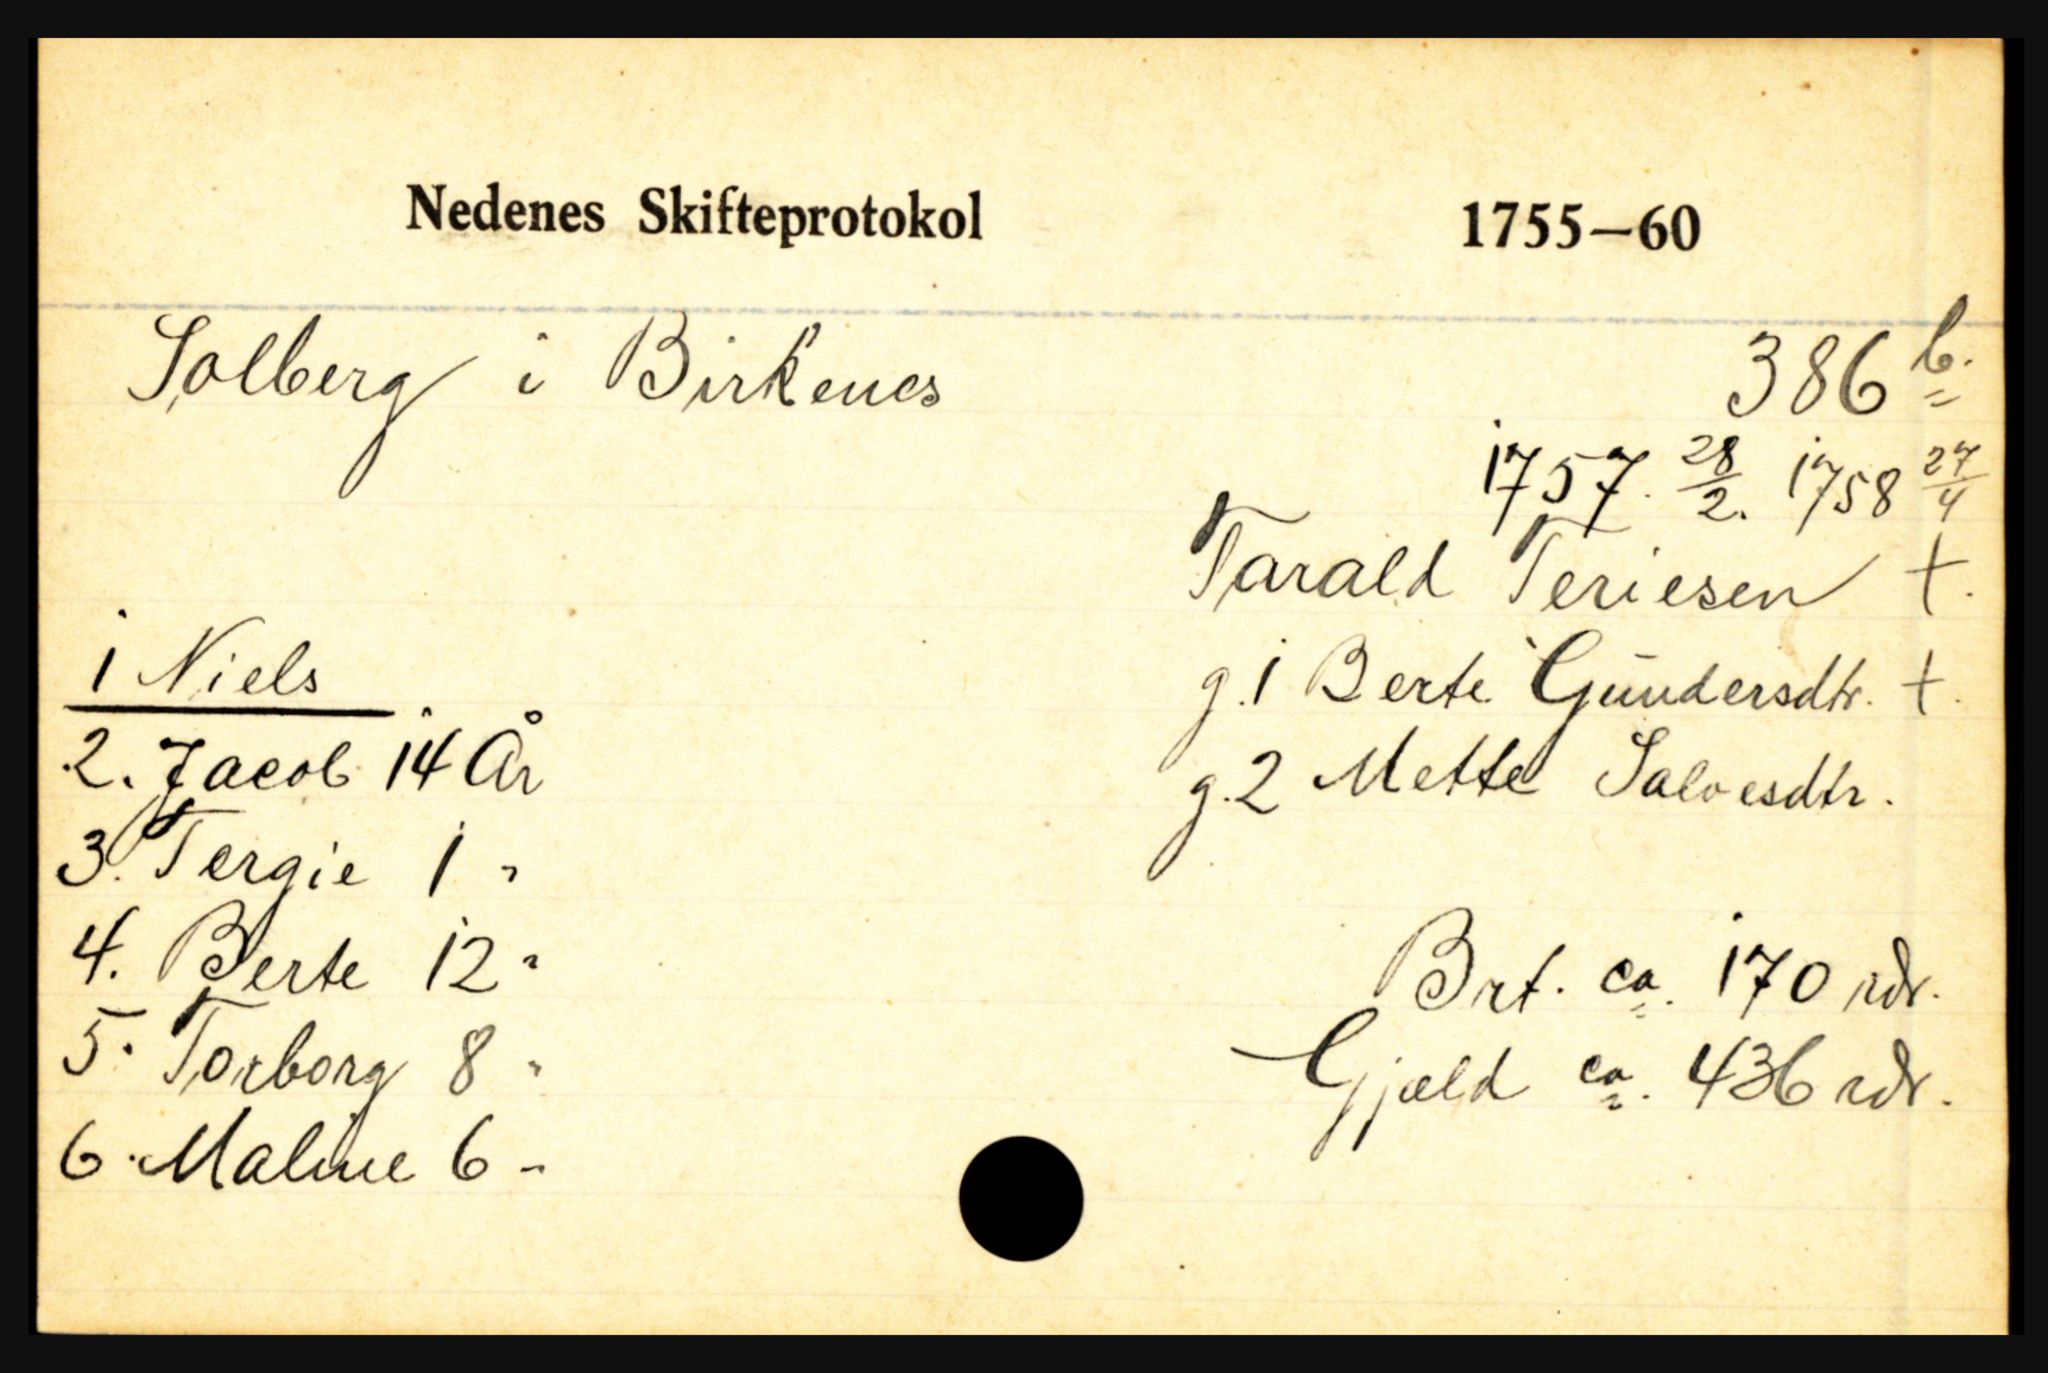 Nedenes Skifteprotokol 1755—60
Solberg i Birkenes 386 b.
1757 28/2. 1758 27/4
Tarald Teriesen †.
g.1 Berte Gundersdtr. †.
g.2 Mette Salvesdtr.
1 Niels
2. Jacob 14 År
3. Tergie 1 "
4. Berte 12 "
5. Torborg 8 "
6. Maline 6 "
Brt. ca. 170 rdr.
Gjæld ca. 436 rdr.